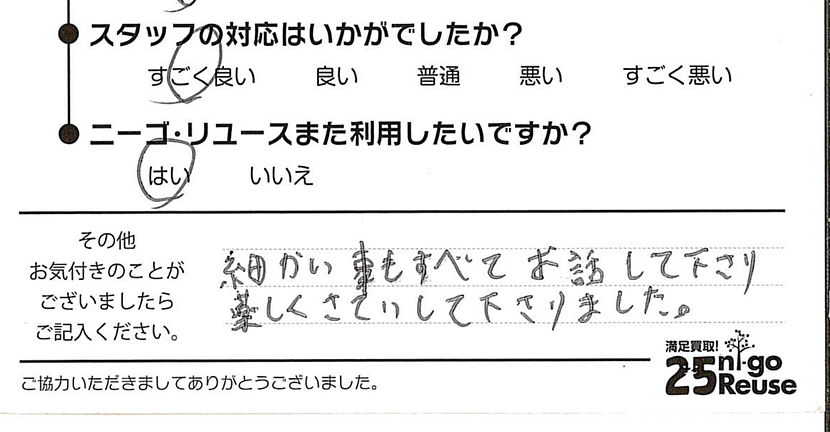 スタッフの対応はいかがでしたか?
すごく良い 良い 普通 悪い すごく悪い
ニーゴ・リユースまた利用したいですか?
はい いいえ
その他
お気付きのことが
ございましたら
ご記入ください。
細かい事もすべてお話して下さり
楽しくさていして下さりました。
ご協力いただきましてありがとうございました。
満足買取!
25 ni-go
Reuse